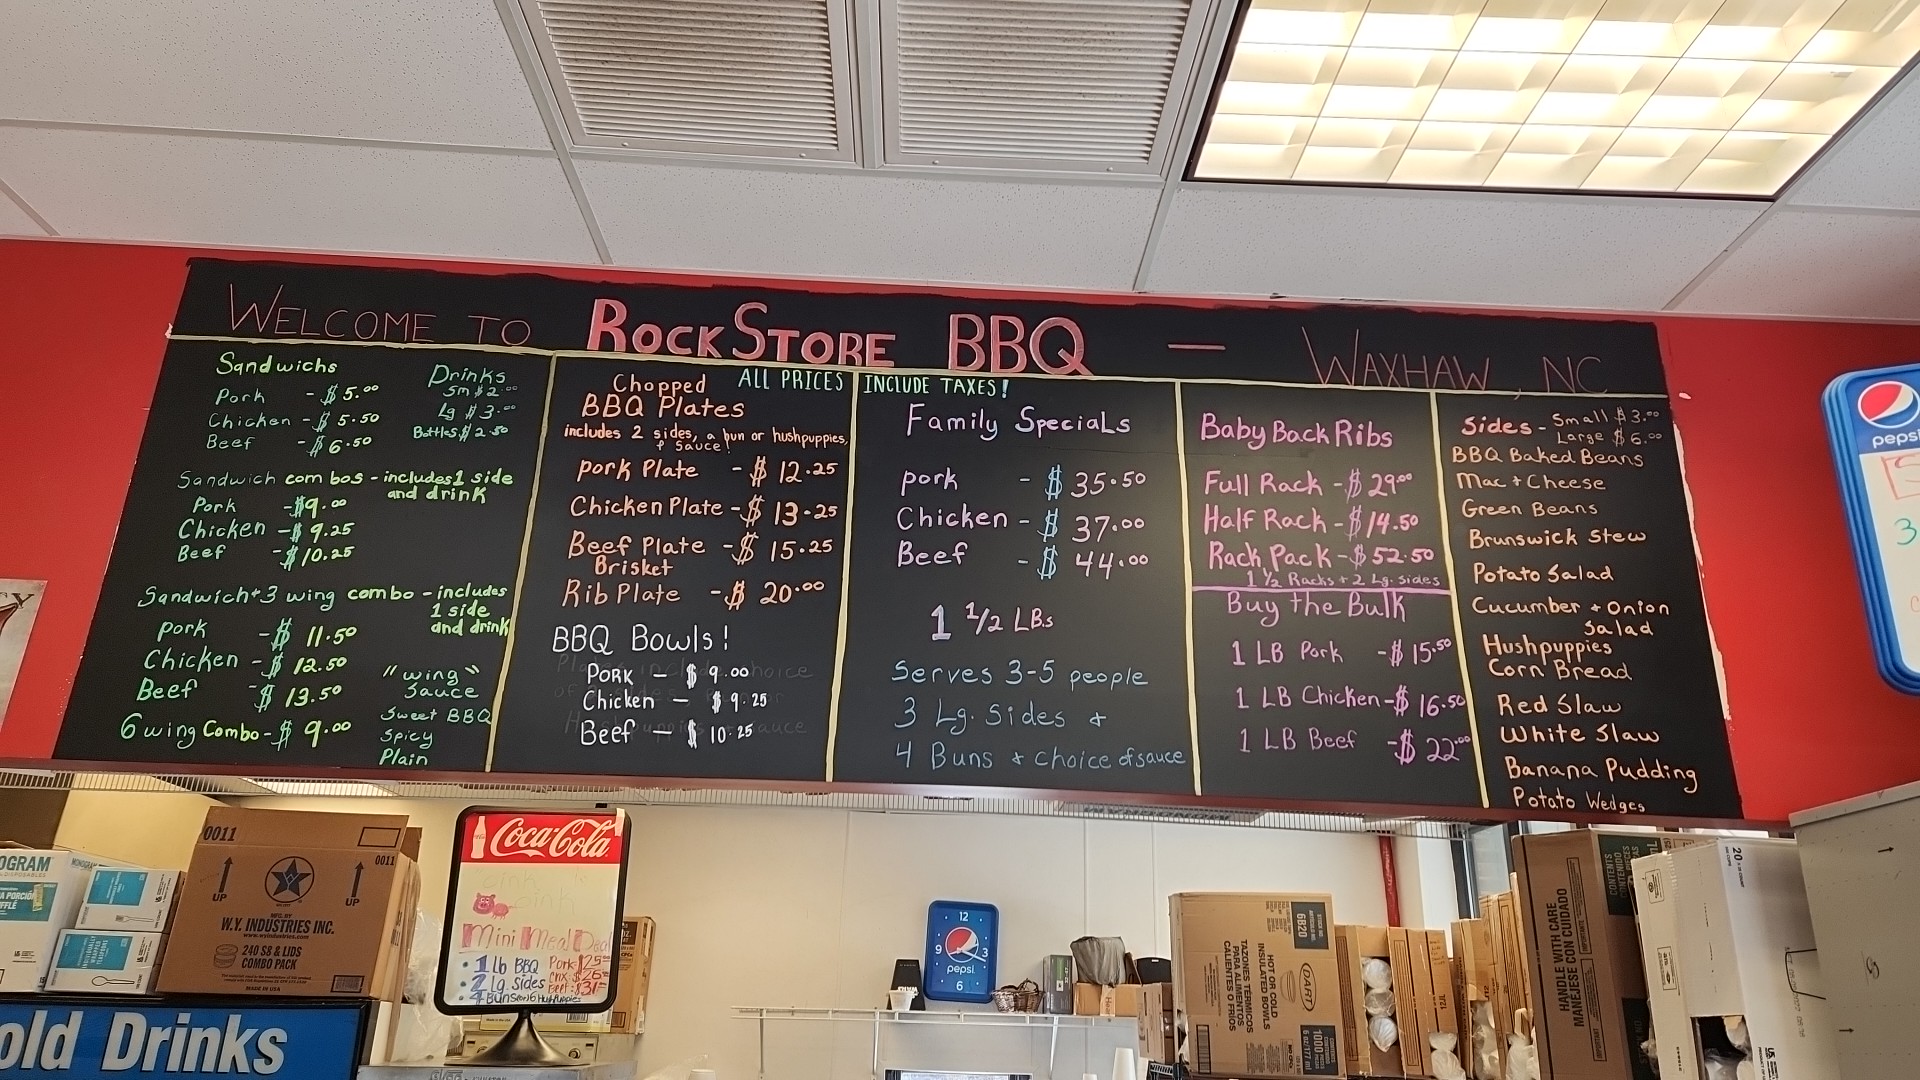 WELCOME TO ROCKSTORE BBQ — WAXHAW, NC
Sandwichs
Pork - $5.00
Chicken - $5.50
Beef - $6.50
Drinks
Sm $2.00
Lg $3.00
Bottles $2.50
Sandwich combos - includes 1 side
and drink
Pork - $9.00
Chicken - $9.25
Beef - $10.25
Sandwich + 3 wing combo - includes
1 side
and drink
Pork - $11.50
Chicken - $12.50
Beef - $13.50
6 wing Combo - $9.00
"wing"
Sauce
Sweet BBQ
Spicy
Plain
ALL PRICES INCLUDE TAXES!
Chopped
BBQ Plates
includes 2 sides, a bun or hushpuppies,
& sauce!
Pork Plate - $12.25
Chicken Plate - $13.25
Beef Plate - $15.25
Brisket
Rib Plate - $20.00
BBQ Bowls!
Pork — $9.00
Chicken — $9.25
Beef — $10.25
Family Specials
Pork - $35.50
Chicken - $37.00
Beef - $44.00
1 1/2 LBs
Serves 3-5 people
3 Lg. Sides +
4 Buns + choice of sauce
Baby Back Ribs
Full Rack - $29.00
Half Rack - $14.50
Rack Pack - $52.50
1 1/2 Racks + 2 Lg. sides
Buy the Bulk
1 LB Pork - $15.50
1 LB Chicken - $16.50
1 LB Beef - $22.00
Sides - Small $3.00
Large $6.00
BBQ Baked Beans
Mac + Cheese
Green Beans
Brunswick Stew
Potato Salad
Cucumber + Onion
Salad
Hushpuppies
Corn Bread
Red Slaw
White Slaw
Banana Pudding
Potato Wedges
pepsi
Coca-Cola
Mini Meal Deal
1 lb BBQ
2 Lg. sides
4 Buns or 6 Hushpuppies
old Drinks
0011
0011
UP
UP
W.Y. INDUSTRIES INC.
240 S8 & LIDS
COMBO PACK
MADE IN USA
12
3
6
9
pepsi
6B20
DART
HOT OR COLD
INSULATED BOWLS
TAZONES TERMICOS
PARA ALIMENTOS
CALIENTES O FRIOS
1000
HANDLE WITH CARE
MANEJESE CON CUIDADO